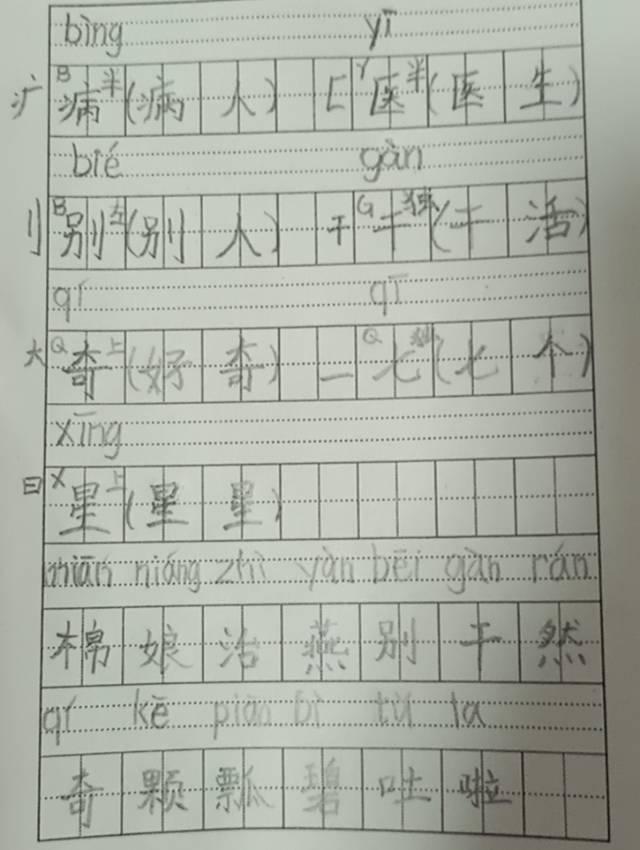 bìng yī
疒 B 病 半 (病 人) 匚 Y 医 半 (医 生)
bié gàn
刂 B 别 左 (别 人) 干 G 干 独 (干 活)
qí qī
大 Q 奇 上 (好 奇) 一 Q 七 独 (七 个)
xīng
日 X 星 上 (星 星)
mián niáng zhì yàn bēi gàn rán
棉 娘 治 燕 别 干 然
qí kē piáo bì tù la
奇 颗 瓢 碧 吐 啦